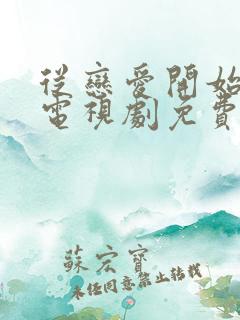 從戀愛開始
電視劇免費
蘇宏寶
未任同意禁止转载